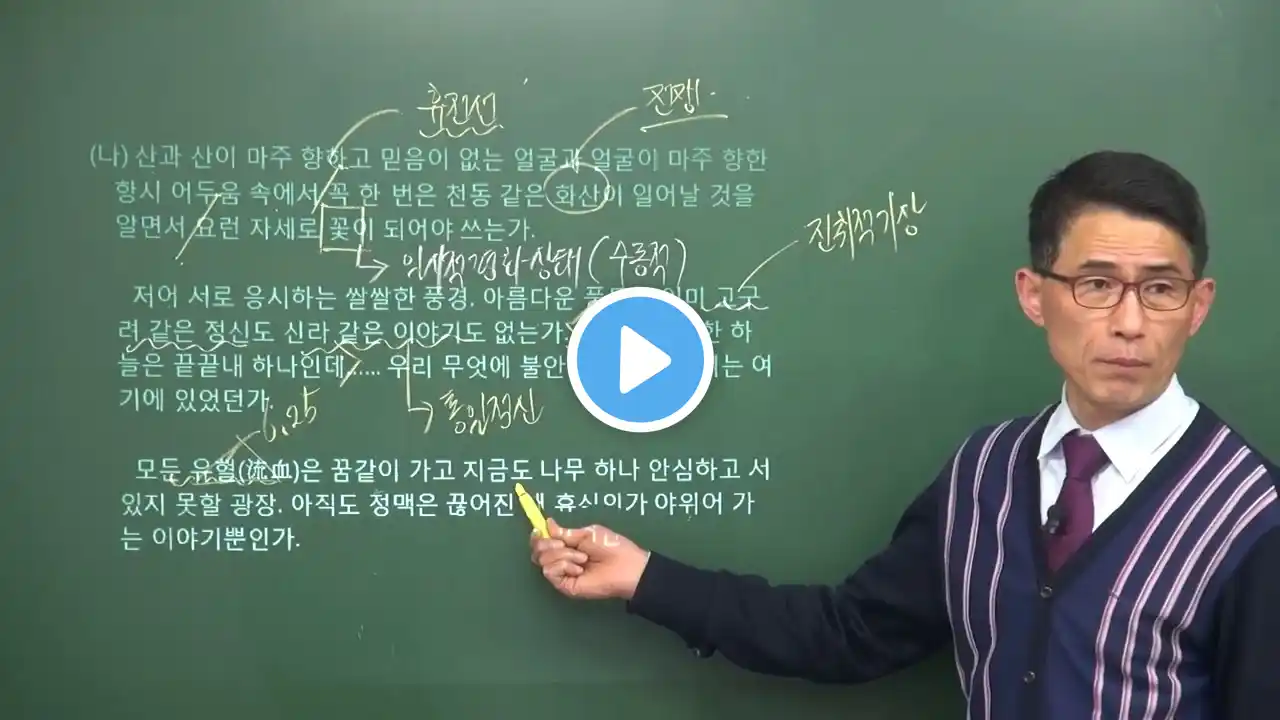 휴전선
전쟁
(나) 산과 산이 마주 향하고 믿음이 없는 얼굴과 얼굴이 마주 향한
항시 어두움 속에서 꼭 한 번은 천동 같은 화산이 일어날 것을
알면서 요런 자세로 꽃이 되어야 쓰는가.
진취적 기상
일시적 평화 상태 (수동적)
저어 서로 응시하는 쌀쌀한 풍경. 아름다운 고구
려 같은 정신도 신라 같은 이야기도 없는가 한 하
늘은 끝끝내 하나인데..... 우리 무엇에 불안 는 여
기에 있었던가.
6.25
통일정신
모든 유혈(流血)은 꿈같이 가고 지금도 나무 하나 안심하고 서
있지 못할 광장. 아직도 정맥은 끊어진 휴식인가 야위어 가
는 이야기뿐인가.